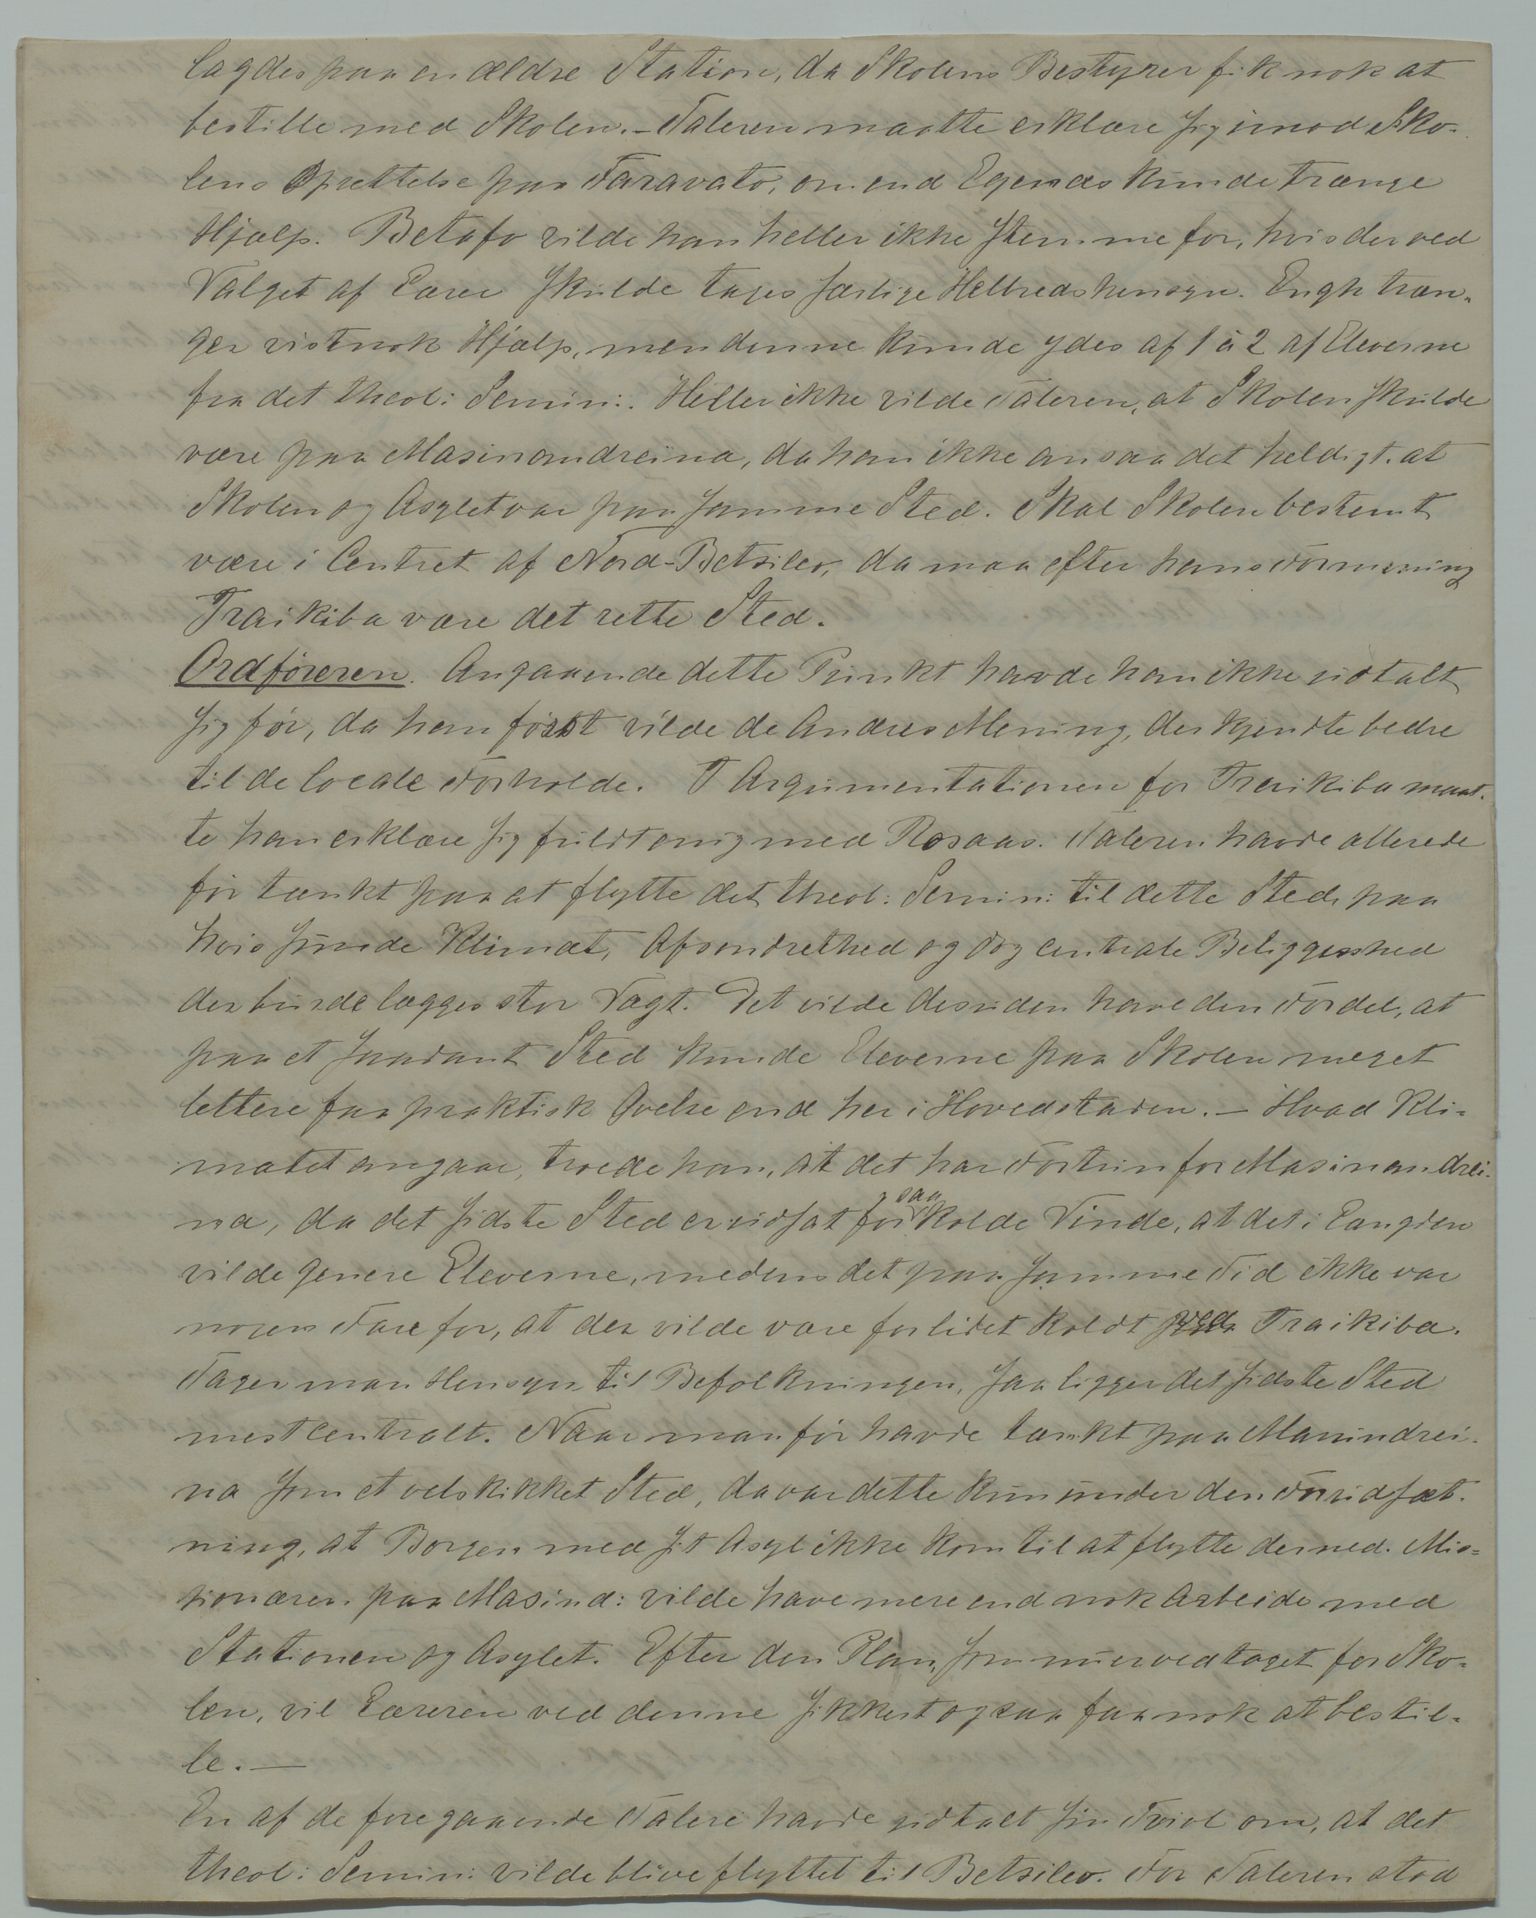 lagdes paa en ældre Station, da Skolens Bestyrer fik nok at
bestille med Skolen. – Taleren maatte erklære sig imod Sko-
lens Oprettelse paa Faravato, om end Egenæs kunde trænge
Hjælp. Betafo vilde han heller ikke stemme for, hvis der ved
Valget af Lærer skulde tages særlige Helbredshensyn. Engh træn-
ger vistnok Hjælp, men denne kunde ydes af 1 à 2 af Eleverne
fra det theol: Semin:. Heller ikke vilde Taleren, at Skolen skulde
være paa Masinandreina, da han ikke ansaa det heldigt, at
Skolen og Asylet var paa samme Sted. Skal Skolen bestemt
være i Centret af Nord-Betsileo, da maa efter hans Formening
Traikiba være det rette Sted.
Ordføreren. Angaaende dette Punkt havde han ikke udtalt
sig før, da han først vilde de Andres Mening, der kjendte bedre
til de locale Forholde. I Argumentationen for Traikiba maat-
te han erklære sig fuldt enig med Rosaas. Taleren havde allerede
før tænkt paa at flytte det theol: Semin: til dette Sted, paa
hvis sunde Klimat, Afsondrethed og dog centrale Beliggenhed
der burde lægges stor Vægt. Det vilde desuden have den Fordel, at
paa et saadant Sted kunde Eleverne paa Skolen meget
lettere faa praktisk Øvelse end her i Hovedstaden. – Hvad Kli-
matet angaar, troede han, at det har Fortrin for Masinandrei-
na, da det sidste Sted er udsat for saa kolde Vinde, at det i Længden
vilde genere Eleverne, medens det paa samme Tid ikke var
nogen Fare for, at der vilde være for lidet koldt ved Traikiba.
Tager man Hensyn til Befolkningen, saa ligger det sidste Sted
mest centralt. Naar man før havde tænkt paa Masinandrei-
na som et velskikket Sted, da var dette kun under den Forudsæt-
ning, at Borgen med sit Asyl ikke kom til at flytte derned. Mis-
sionæren paa Masina: vilde have mere end nok Arbeide med
Stationen og Asylet. Efter den Plan, som nu er vedtaget for Sko-
len, vil Læreren ved denne sikkert ogsaa faa nok at bestil-
le. –
En af de foregaaende Talere havde udtalt sin Tvivl om, at det
theol: Semin: vilde blive flyttet til Betsileo. For Taleren stod